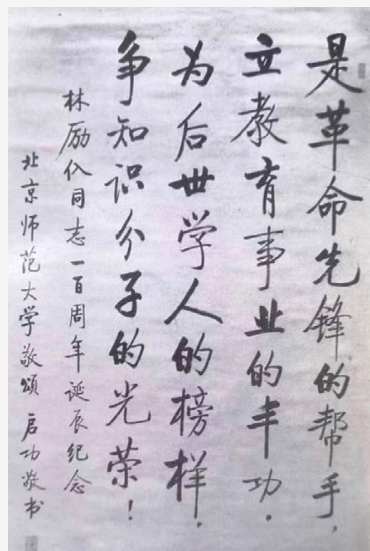 是革命先锋的帮手，
立教育事业的丰功。
为后世学人的榜样，
争知识分子的光荣！
林励仁同志一百周年诞辰纪念
北京师范大学敬颂 启功敬书